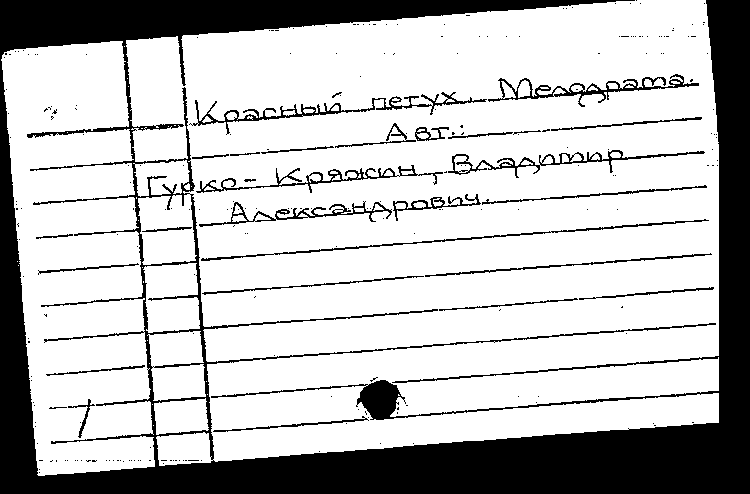 Красный петух. Мелодрама.
Авт.:
Гурко-Кряжин, Владимир
Александрович.